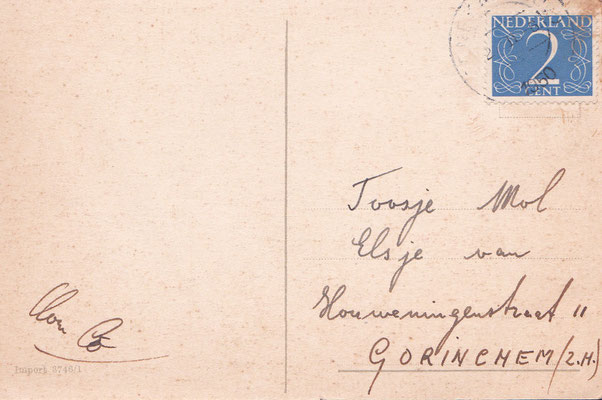 NEDERLAND
2
CENT
Toosje Mol
Elsje van
Houweningenstraat 11
GORINCHEM (Z.H.)
Co
Import 3746/1